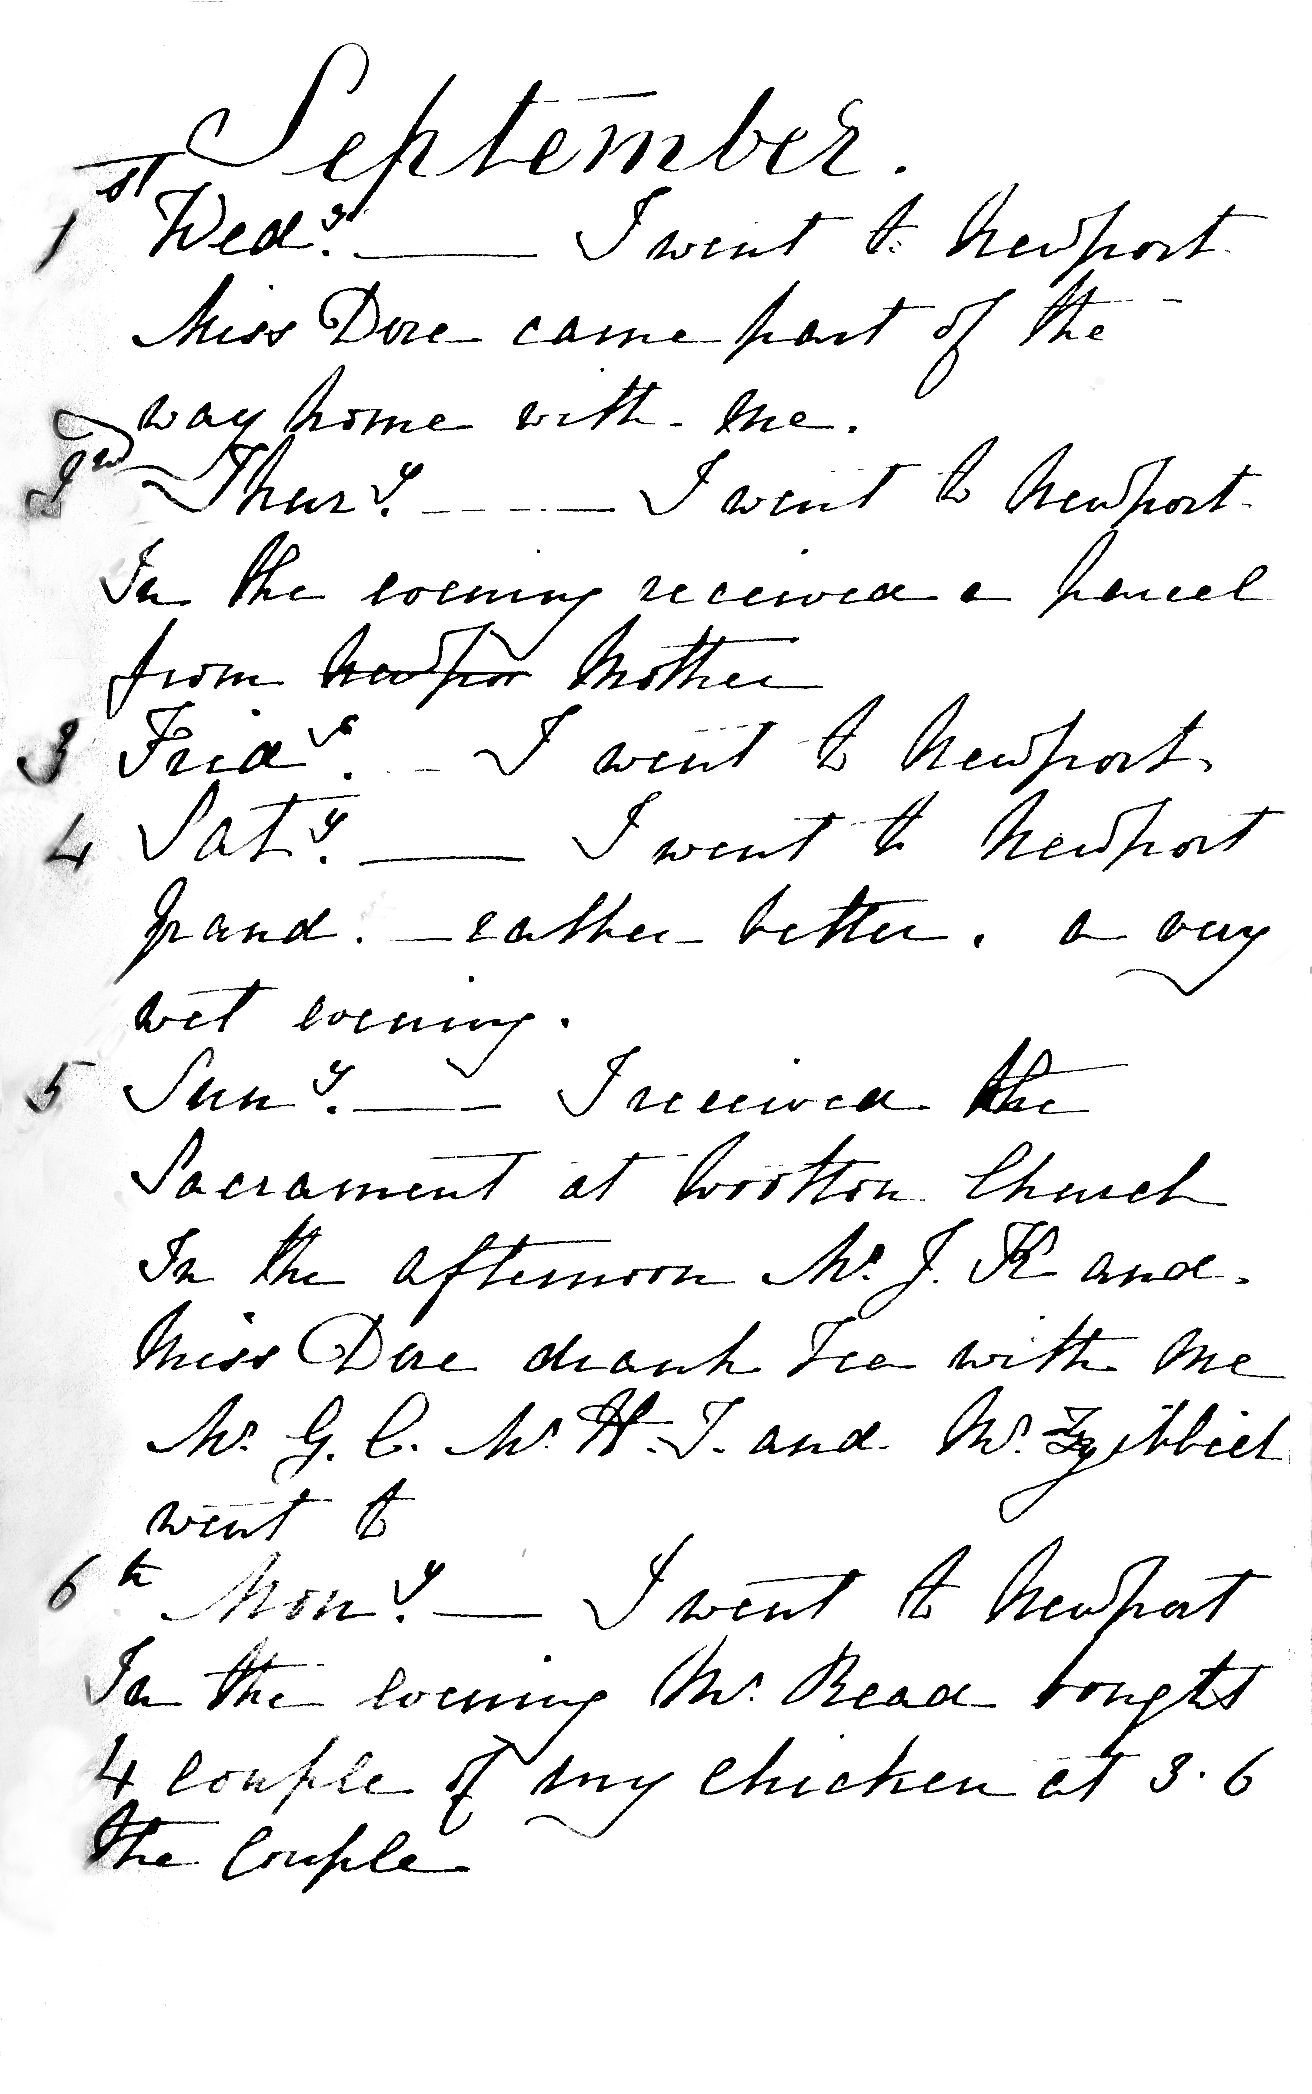 September.
1st Wedy. — I went to Newport
Miss Dore came part of the
way home with me.
2nd Thury. — I went to Newport
In the evening received a parcel
from Newpor Mother
3 Fridy. - I went to Newport.
4 Saty. — I went to Newport
Grand. — rather better. a very
wet evening.
5 Suny. — I received the
Sacrament at Wootton Church
In the afternoon Mr. J. K and
Miss Dore drank Tea with me
Mr. G. C. Mr. H. T. and Mr.
went to
6th Mony. — I went to Newport
In the evening Mr. Read bought
4 couple of my chicken at 3.6
the Couple